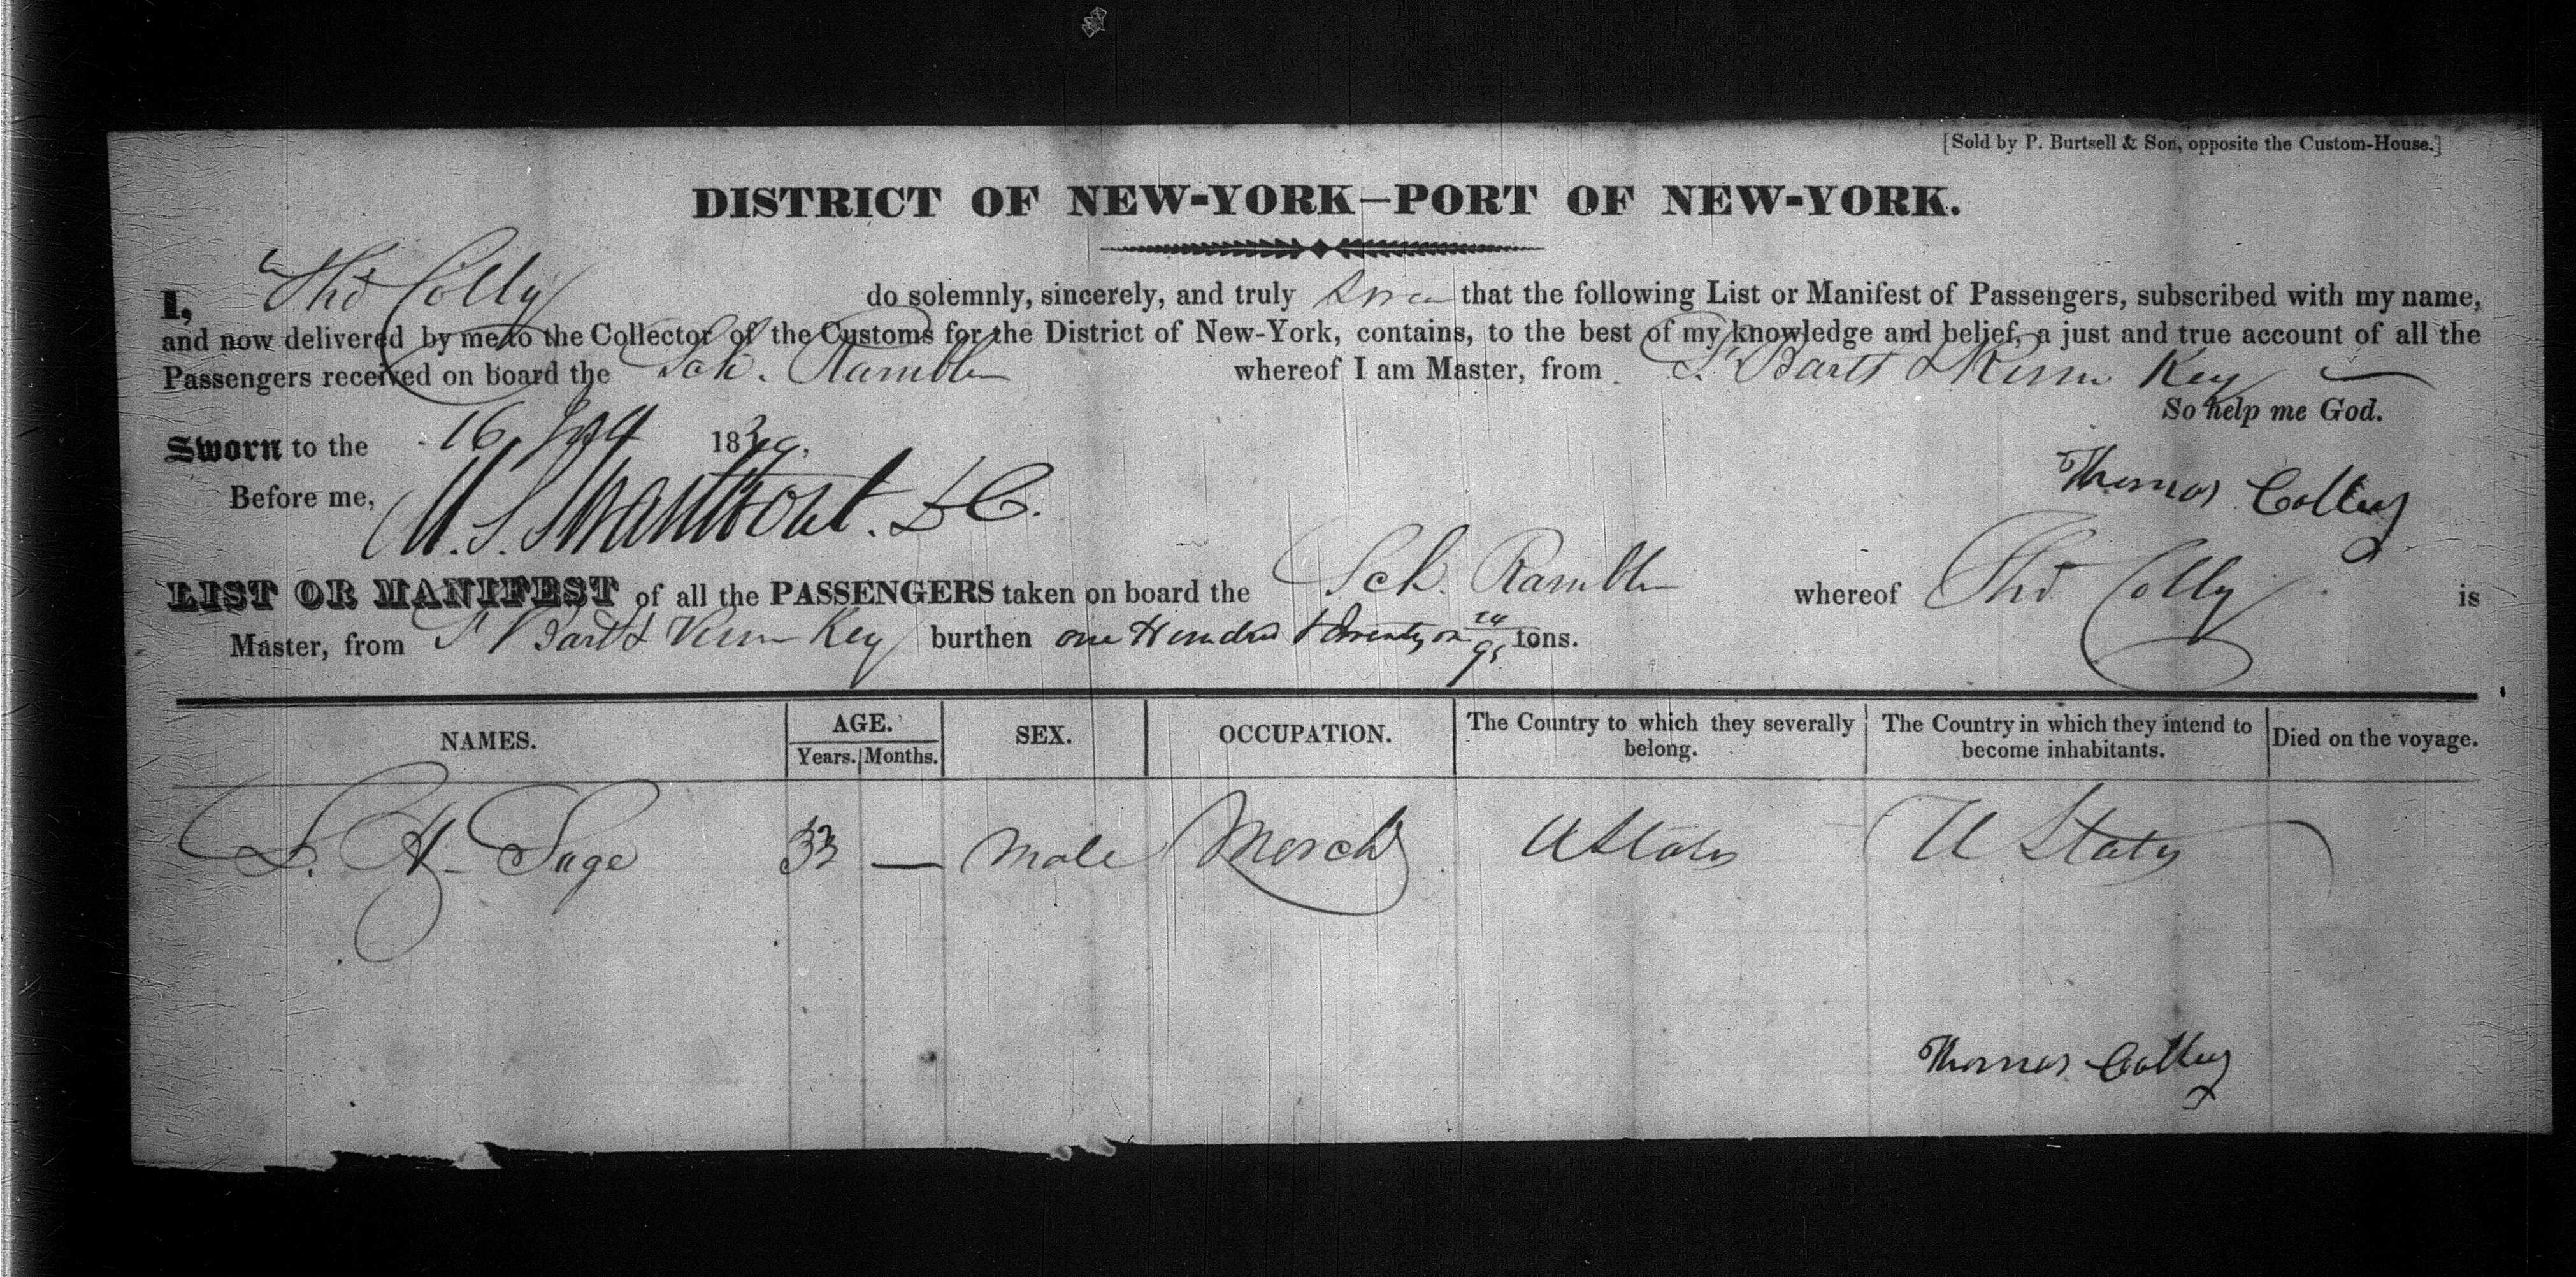 [Sold by P. Burtsell & Son, opposite the Custom-House.]
DISTRICT OF NEW-YORK—PORT OF NEW-YORK.
I, Thos Colly do solemnly, sincerely, and truly that the following List or Manifest of Passengers, subscribed with my name,
and now delivered by me to the Collector of the Customs for the District of New-York, contains, to the best of my knowledge and belief, a just and true account of all the
Passengers received on board the Sch. Rambler whereof I am Master, from St Barts & Key
So help me God.
Sworn to the 16 1839,
Before me, M. S. Swartwout. D C.
Thomas Colley
LIST OR MANIFEST of all the PASSENGERS taken on board the Sch. Rambler whereof Thos Colly is
Master, from St Barts & Key burthen one Hundred & twenty on 24/95 tons.
NAMES. AGE. SEX. OCCUPATION. The Country to which they severally belong. The Country in which they intend to become inhabitants. Died on the voyage.
Years. Months.
L. H. Sage 33 — Male Merch U States U States
Thomas Colley